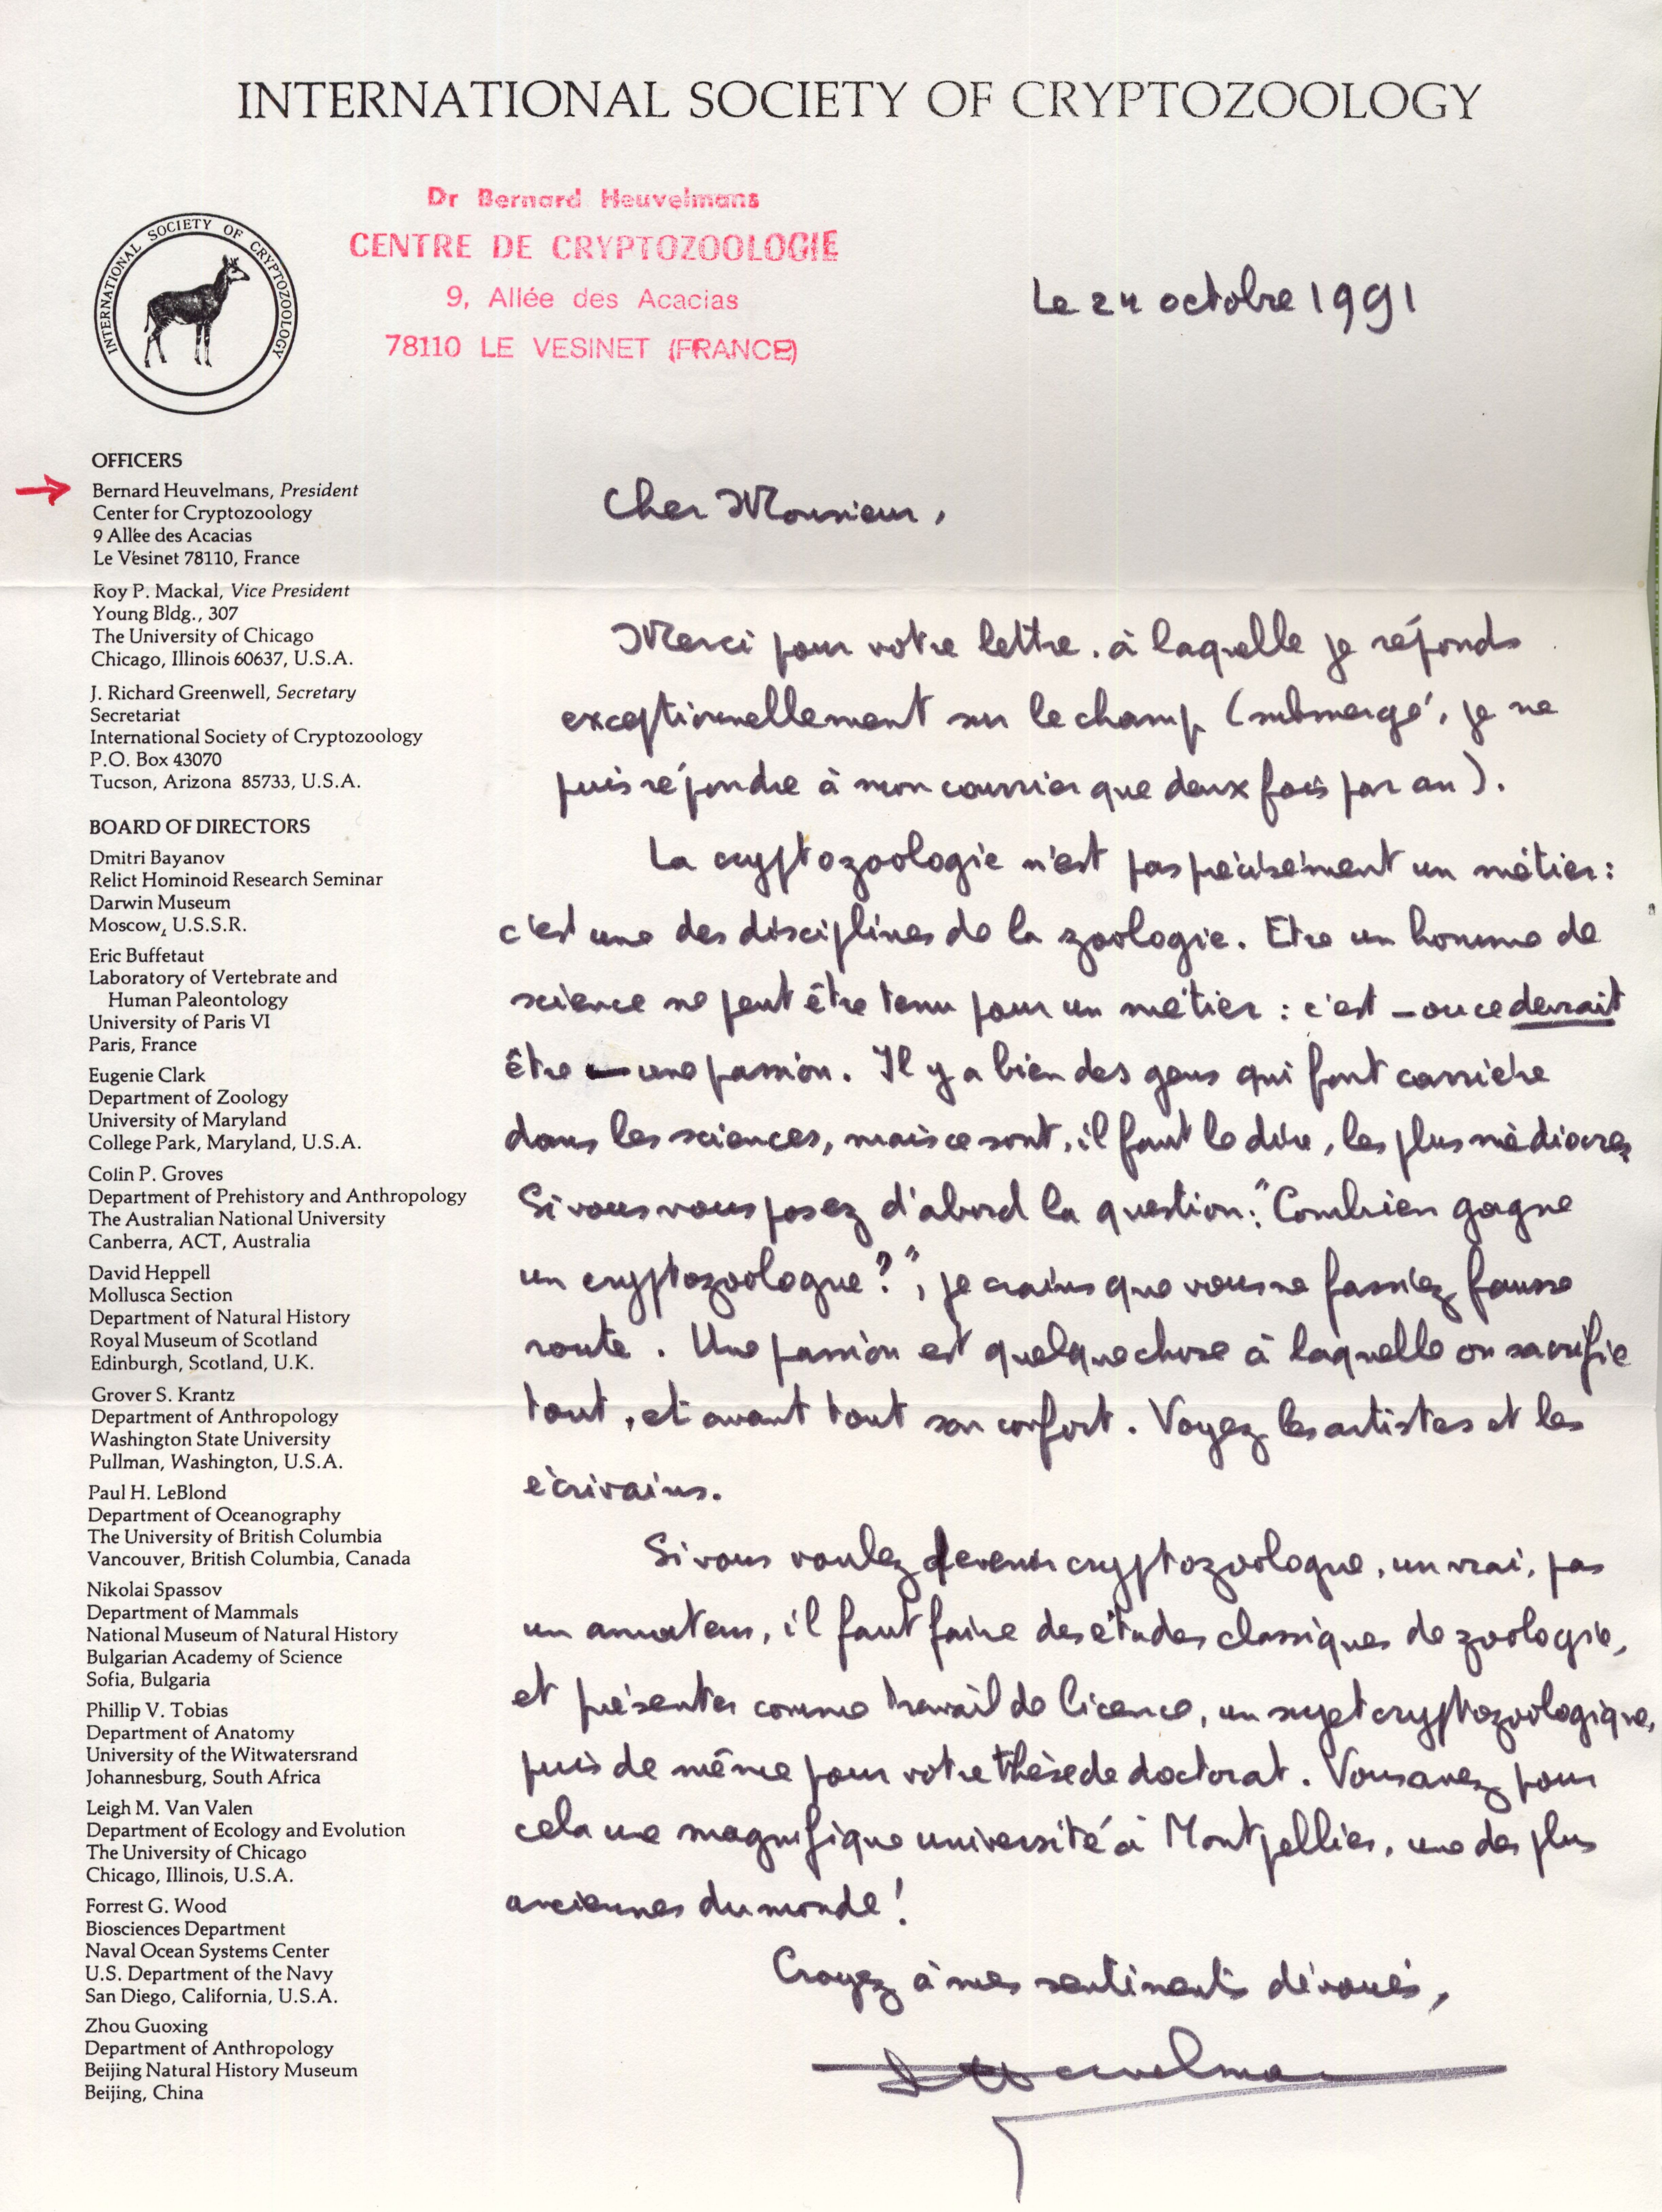 INTERNATIONAL SOCIETY OF CRYPTOZOOLOGY
INTERNATIONAL SOCIETY OF CRYPTOZOOLOGY
Dr Bernard Heuvelmans
CENTRE DE CRYPTOZOOLOGIE
9, Allée des Acacias
78110 LE VESINET (FRANCE)
Le 24 octobre 1991
OFFICERS
Bernard Heuvelmans, President
Center for Cryptozoology
9 Allée des Acacias
Le Vésinet 78110, France
Roy P. Mackal, Vice President
Young Bldg., 307
The University of Chicago
Chicago, Illinois 60637, U.S.A.
J. Richard Greenwell, Secretary
Secretariat
International Society of Cryptozoology
P.O. Box 43070
Tucson, Arizona 85733, U.S.A.
BOARD OF DIRECTORS
Dmitri Bayanov
Relict Hominoid Research Seminar
Darwin Museum
Moscow, U.S.S.R.
Eric Buffetaut
Laboratory of Vertebrate and
Human Paleontology
University of Paris VI
Paris, France
Eugenie Clark
Department of Zoology
University of Maryland
College Park, Maryland, U.S.A.
Colin P. Groves
Department of Prehistory and Anthropology
The Australian National University
Canberra, ACT, Australia
David Heppell
Mollusca Section
Department of Natural History
Royal Museum of Scotland
Edinburgh, Scotland, U.K.
Grover S. Krantz
Department of Anthropology
Washington State University
Pullman, Washington, U.S.A.
Paul H. LeBlond
Department of Oceanography
The University of British Columbia
Vancouver, British Columbia, Canada
Nikolai Spassov
Department of Mammals
National Museum of Natural History
Bulgarian Academy of Science
Sofia, Bulgaria
Phillip V. Tobias
Department of Anatomy
University of the Witwatersrand
Johannesburg, South Africa
Leigh M. Van Valen
Department of Ecology and Evolution
The University of Chicago
Chicago, Illinois, U.S.A.
Forrest G. Wood
Biosciences Department
Naval Ocean Systems Center
U.S. Department of the Navy
San Diego, California, U.S.A.
Zhou Guoxing
Department of Anthropology
Beijing Natural History Museum
Beijing, China
Cher Monsieur,
Merci pour votre lettre, à laquelle je réponds
exceptionnellement sur le champ (submergé, je ne
puis répondre à mon courrier que deux fois par an).
La cryptozoologie n'est pas précisément un métier:
c'est une des disciplines de la zoologie. Etre un homme de
science ne peut être tenu pour un métier : c'est – ou ce devrait
être – une passion. Il y a bien des gens qui font carrière
dans les sciences, mais ce sont, il faut le dire, les plus médiocres
Si vous vous posez d'abord la question: "Combien gagne
un cryptozoologue?", je crains que vous ne fassiez fausse
route. Une passion est quelque chose à laquelle on sacrifie
tout, et avant tout son confort. Voyez les artistes et les
écrivains.
Si vous voulez devenir cryptozoologue, un vrai, pas
un amateur, il faut faire des études classiques de zoologie,
et présenter comme travail de licence, un sujet cryptozoologique,
puis de même pour votre thèse de doctorat. Vous avez pour
cela une magnifique université à Montpellier, une des plus
anciennes du monde!
Croyez à mes sentiments dévoués,
B Heuvelmans